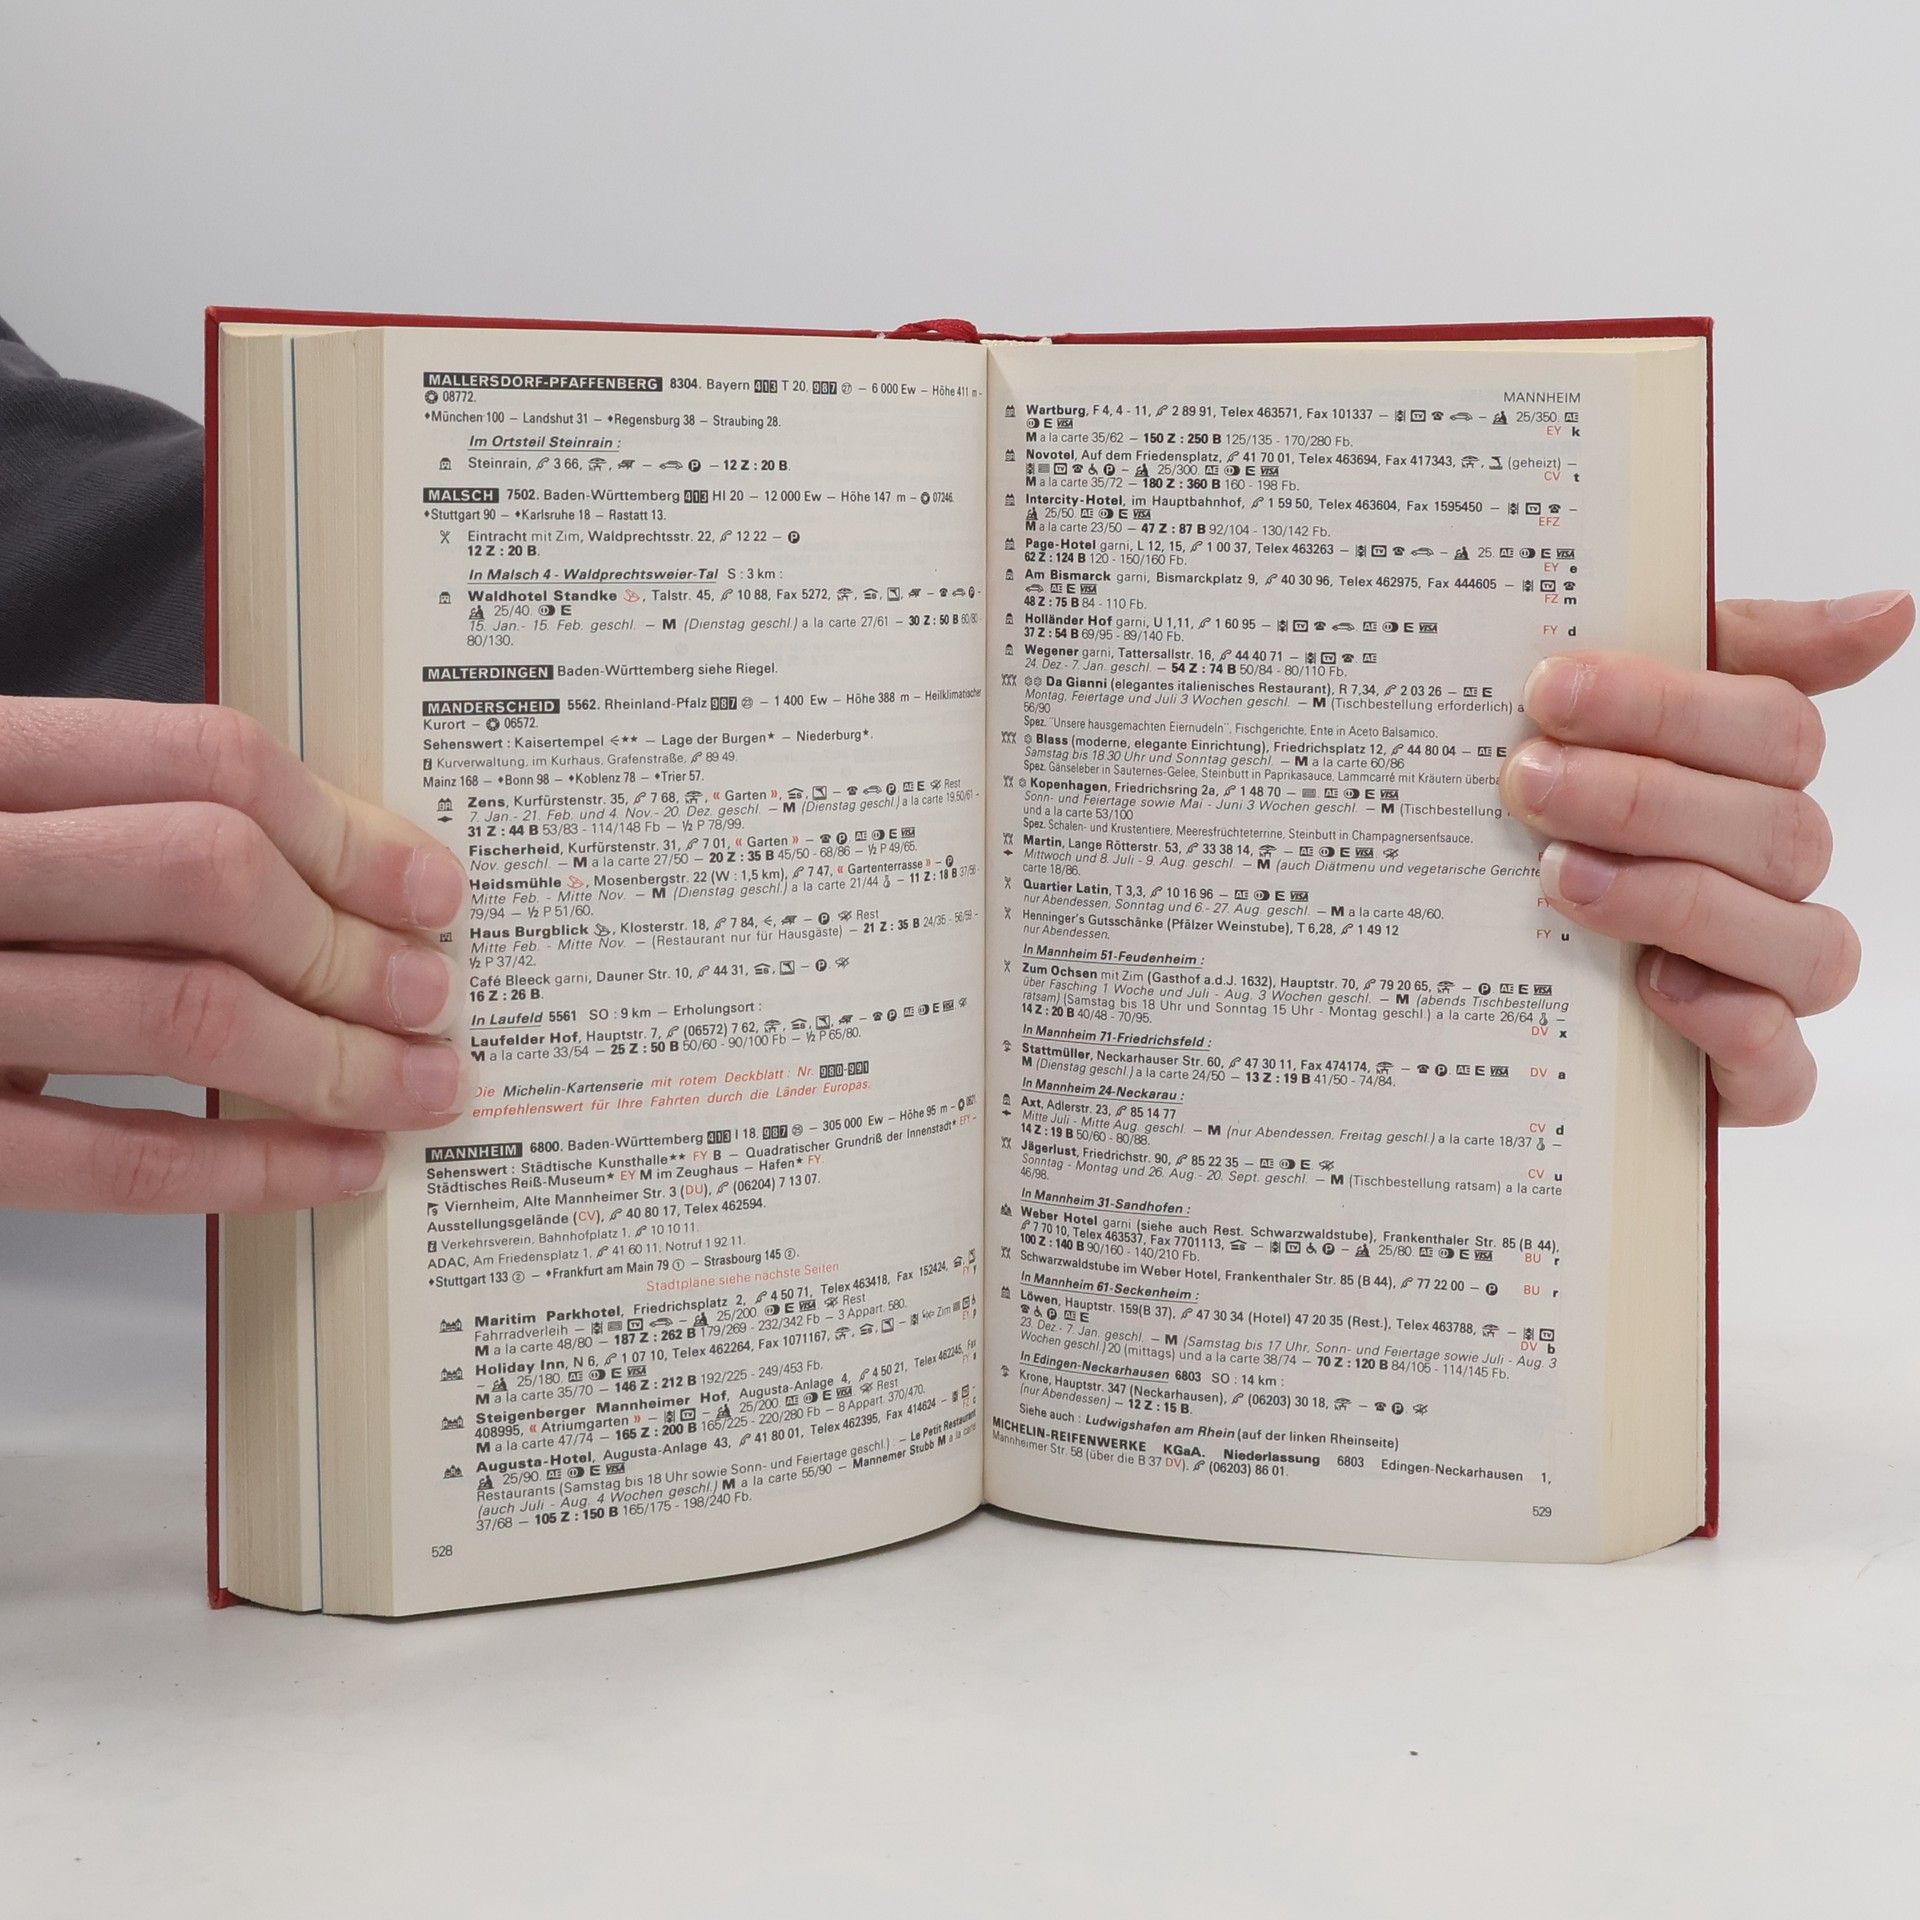 MALLERSDORF-PFAFFENBERG 8304. Bayern 413 T 20, 987 ㉗ – 6 000 Ew – Höhe 411 m –
08772.
♦München 100 – Landshut 31 – ♦Regensburg 38 – Straubing 28.
Im Ortsteil Steinrain :
Steinrain, 3 66, – – 12 Z : 20 B.
MALSCH 7502. Baden-Württemberg 413 HI 20 – 12 000 Ew – Höhe 147 m – 07246.
♦Stuttgart 90 – ♦Karlsruhe 18 – Rastatt 13.
Eintracht mit Zim, Waldprechtsstr. 22, 12 22 – P
12 Z : 20 B.
In Malsch 4 - Waldprechtsweier-Tal S : 3 km :
Waldhotel Standke, Talstr. 45, 10 88, Fax 5272,
25/40. E
15. Jan.- 15. Feb. geschl. – M (Dienstag geschl.) a la carte 27/61 – 30 Z : 50 B 60/80 -
80/130.
MALTERDINGEN Baden-Württemberg siehe Riegel.
MANDERSCHEID 5562. Rheinland-Pfalz 987 ㉓ – 1 400 Ew – Höhe 388 m – Heilklimatischer
Kurort – 06572.
Sehenswert : Kaisertempel ** – Lage der Burgen* – Niederburg*.
Kurverwaltung, im Kurhaus, Grafenstraße, 89 49.
Mainz 168 – ♦Bonn 98 – ♦Koblenz 78 – ♦Trier 57.
Zens, Kurfürstenstr. 35, 7 68, « Garten », – P AE E Rest
7. Jan.- 21. Feb. und 4. Nov.- 20. Dez. geschl. – M (Dienstag geschl.) a la carte 19,50/61 –
31 Z : 44 B 53/83 - 114/148 Fb – ½ P 78/99.
Fischerheid, Kurfürstenstr. 31, 7 01, « Garten » – P AE E VISA
Nov. geschl. – M a la carte 27/50 – 20 Z : 35 B 45/50 - 68/86 – ½ P 49/65.
Heidsmühle, Mosenbergstr. 22 (W : 1,5 km), 7 47, « Gartenterrasse » – P
Mitte Feb. - Mitte Nov. – M (Dienstag geschl.) a la carte 21/44 – 11 Z : 18 B 37/56 -
79/94 – ½ P 51/60.
Haus Burgblick, Klosterstr. 18, 7 84, – P Rest
Mitte Feb. - Mitte Nov. – (Restaurant nur für Hausgäste) – 21 Z : 35 B 24/35 - 56/59 –
½ P 37/42.
Café Bleeck garni, Dauner Str. 10, 44 31, – P
16 Z : 26 B.
In Laufeld 5561 SO : 9 km – Erholungsort :
Laufelder Hof, Hauptstr. 7, (06572) 7 62, – P AE E VISA
M a la carte 33/54 – 25 Z : 50 B 50/60 - 90/100 Fb – ½ P 65/80.
Die Michelin-Kartenserie mit rotem Deckblatt : Nr. 980-991
empfehlenswert für Ihre Fahrten durch die Länder Europas.
MANNHEIM 6800. Baden-Württemberg 413 I 18, 987 ㉕ – 305 000 Ew – Höhe 95 m –
Sehenswert : Städtische Kunsthalle** FY B – Quadratischer Grundriß der Innenstadt* EFY –
Städtisches Reiß-Museum* EY M im Zeughaus – Hafen* FY.
Viernheim, Alte Mannheimer Str. 3 (DU), (06204) 7 13 07.
Ausstellungsgelände (CV), 40 80 17, Telex 462594.
Verkehrsverein, Bahnhofplatz 1, 10 10 11.
ADAC, Am Friedensplatz 1, 41 60 11, Notruf 1 92 11.
♦Stuttgart 133 ② – ♦Frankfurt am Main 79 ① – Strasbourg 145 ②.
Stadtpläne siehe nächste Seiten
Maritim Parkhotel, Friedrichsplatz 2, 4 50 71, Telex 463418, Fax 152424,
Fahrradverleih – TV – 25/200. E VISA Rest
M a la carte 48/80 – 187 Z : 262 B 179/269 - 232/342 Fb – 3 Appart. 580.
Holiday Inn, N 6, 1 07 10, Telex 462264, Fax 1071167, – Zim
– 25/180. AE E VISA
M a la carte 35/70 – 146 Z : 212 B 192/225 - 249/453 Fb.
Steigenberger Mannheimer Hof, Augusta-Anlage 4, 4 50 21, Telex 462245, Fax
408995, « Atriumgarten » – TV – 25/200. AE E VISA Rest
M a la carte 47/74 – 165 Z : 200 B 165/225 - 220/280 Fb – 8 Appart. 370/470.
Augusta-Hotel, Augusta-Anlage 43, 41 80 01, Telex 462395, Fax 414624 –
25/90. AE E VISA
Restaurants (Samstag bis 18 Uhr sowie Sonn- und Feiertage geschl.) – Le Petit Restaurant
(auch Juli - Aug. 4 Wochen geschl.) M a la carte 55/90 – Mannemer Stubb M a la carte
37/68 – 105 Z : 150 B 165/175 - 198/240 Fb.
528
MANNHEIM
Wartburg, F 4, 4 - 11, 2 89 91, Telex 463571, Fax 101337 – TV – 25/350. AE
E VISA EY k
M a la carte 35/62 – 150 Z : 250 B 125/135 - 170/280 Fb.
Novotel, Auf dem Friedensplatz, 41 70 01, Telex 463694, Fax 417343, (geheizt) –
TV P – 25/300. AE E VISA CV t
M a la carte 35/72 – 180 Z : 360 B 160 - 198 Fb.
Intercity-Hotel, im Hauptbahnhof, 1 59 50, Telex 463604, Fax 1595450 – TV –
25/50. AE E VISA EFZ
M a la carte 23/50 – 47 Z : 87 B 92/104 - 130/142 Fb.
Page-Hotel garni, L 12, 15, 1 00 37, Telex 463263 – TV – 25. AE E VISA
62 Z : 124 B 120 - 150/160 Fb. EY e
Am Bismarck garni, Bismarckplatz 9, 40 30 96, Telex 462975, Fax 444605 – TV
AE E VISA FZ m
48 Z : 75 B 84 - 110 Fb.
Holländer Hof garni, U 1,11, 1 60 95 – TV AE E VISA FY d
37 Z : 54 B 69/95 - 89/140 Fb.
Wegener garni, Tattersallstr. 16, 44 40 71 – TV AE
24. Dez.- 7. Jan. geschl. – 54 Z : 74 B 50/84 - 80/110 Fb.
Da Gianni (elegantes italienisches Restaurant), R 7,34, 2 03 26 – AE E
Montag, Feiertage und Juli 3 Wochen geschl. – M (Tischbestellung erforderlich) a
56/90
Spez. "Unsere hausgemachten Eiernudeln", Fischgerichte, Ente in Aceto Balsamico.
Blass (moderne, elegante Einrichtung), Friedrichsplatz 12, 44 80 04 – AE E
Samstag bis 18.30 Uhr und Sonntag geschl. – M a la carte 60/86
Spez. Gänseleber in Sauternes-Gelee, Steinbutt in Paprikasauce, Lammcarré mit Kräutern überba
Kopenhagen, Friedrichsring 2a, 1 48 70 – AE E VISA
Sonn- und Feiertage sowie Mai - Juni 3 Wochen geschl. – M (Tischbestellung
und a la carte 53/100
Spez. Schalen- und Krustentiere, Meeresfrüchteterrine, Steinbutt in Champagnersenfsauce.
Martin, Lange Rötterstr. 53, 33 38 14, – AE E VISA
Mittwoch und 8. Juli - 9. Aug. geschl. – M (auch Diätmenu und vegetarische Gerichte
carte 18/86.
Quartier Latin, T 3,3, 10 16 96 – AE E VISA
nur Abendessen, Sonntag und 6.- 27. Aug. geschl. – M a la carte 48/60. FY
Henninger's Gutsschänke (Pfälzer Weinstube), T 6,28, 1 49 12 FY u
nur Abendessen.
In Mannheim 51-Feudenheim :
Zum Ochsen mit Zim (Gasthof a.d.J. 1632), Hauptstr. 70, 79 20 65, – P. AE E VISA
über Fasching 1 Woche und Juli - Aug. 3 Wochen geschl. – M (abends Tischbestellung
ratsam) (Samstag bis 18 Uhr und Sonntag 15 Uhr - Montag geschl.) a la carte 26/64 –
14 Z : 20 B 40/48 - 70/95. DV x
In Mannheim 71-Friedrichsfeld :
Stattmüller, Neckarhauser Str. 60, 47 30 11, Fax 474174, – P. AE E VISA DV a
M (Dienstag geschl.) a la carte 24/50 – 13 Z : 19 B 41/50 - 74/84.
In Mannheim 24-Neckarau :
Axt, Adlerstr. 23, 85 14 77 CV d
Mitte Juli - Mitte Aug. geschl. – M (nur Abendessen, Freitag geschl.) a la carte 18/37 –
14 Z : 19 B 50/60 - 80/88.
Jägerlust, Friedrichstr. 90, 85 22 35 – AE E CV u
Sonntag - Montag und 26. Aug.- 20. Sept. geschl. – M (Tischbestellung ratsam) a la carte
46/98.
In Mannheim 31-Sandhofen :
Weber Hotel garni (siehe auch Rest. Schwarzwaldstube), Frankenthaler Str. 85 (B 44),
7 70 10, Telex 463537, Fax 7701113, – TV P – 25/80. AE E VISA BU r
100 Z : 140 B 90/160 - 140/210 Fb.
Schwarzwaldstube im Weber Hotel, Frankenthaler Str. 85 (B 44), 77 22 00 – P BU r
In Mannheim 61-Seckenheim :
Löwen, Hauptstr. 159(B 37), 47 30 34 (Hotel) 47 20 35 (Rest.), Telex 463788, – TV
P. AE E DV b
23. Dez.- 7. Jan. geschl. – M (Samstag bis 17 Uhr, Sonn- und Feiertage sowie Juli - Aug. 3
Wochen geschl.) 20 (mittags) und a la carte 38/74 – 70 Z : 120 B 84/105 - 114/145 Fb.
In Edingen-Neckarhausen 6803 SO : 14 km :
Krone, Hauptstr. 347 (Neckarhausen), (06203) 30 18, – P.
(nur Abendessen) – 12 Z : 15 B.
Siehe auch : Ludwigshafen am Rhein (auf der linken Rheinseite)
MICHELIN-REIFENWERKE KGaA. Niederlassung 6803 Edingen-Neckarhausen 1,
Mannheimer Str. 58 (über die B 37 DV), (06203) 86 01.
529